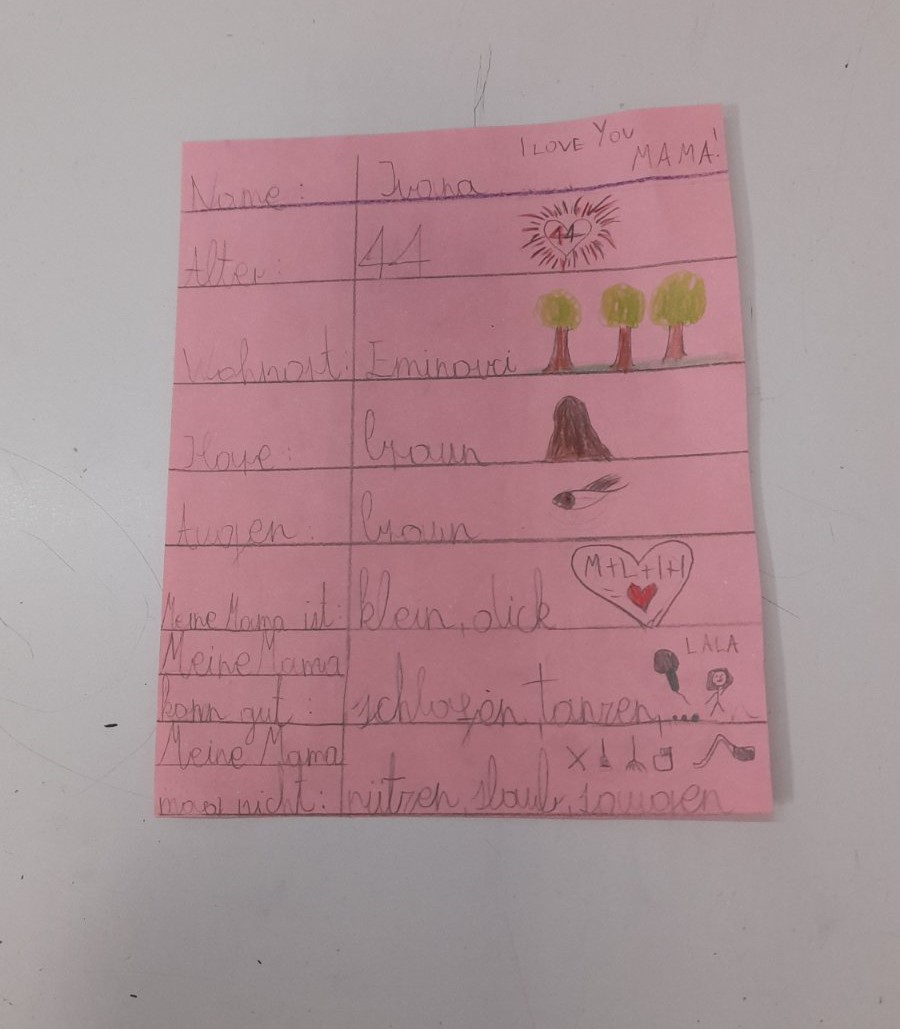 I LOVE YOU
MAMA!
Name: Ivana
Alter: 44 44
Wohnort: Eminovci
Hare: braun
Augen: braun
M+L+I+I
Meine Mama ist: klein, dick
LALA
Meine Mama
kann gut: schlafen, tanzen, ...
Meine Mama
mag nicht: nützen, staub, saugen